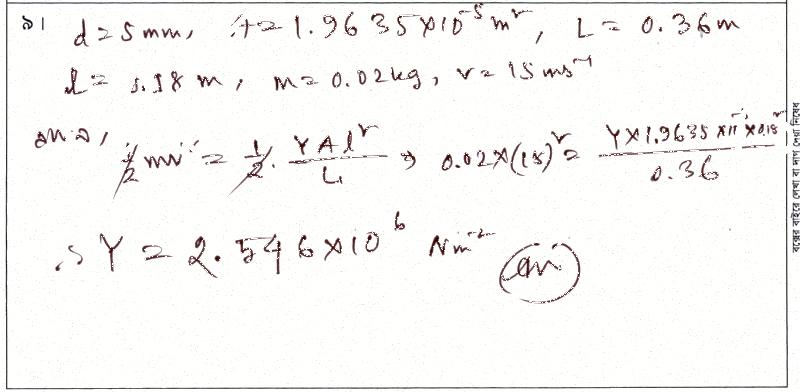 ৯। d = 5 mm, A = 1.9635×10⁻⁵ m², L = 0.36 m
l = 0.18 m, m = 0.02 kg, v = 15 ms⁻¹
½ mv² = ½ · YAl²/L ⇒ 0.02×(15)² = Y×1.9635×10⁻⁵×0.18²/0.36
∴ Y = 2.546×10⁶ Nm⁻² (Ans)
বক্সের বাইরে লেখা বা দাগ দেয়া নিষেধ